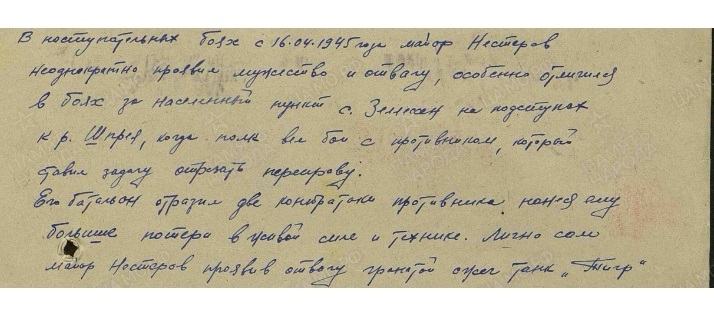 В наступательных боях с 16.04.1945 года майор Нестеров
неоднократно проявил мужество и отвагу, особенно отличился
в боях за населенный пункт с. Зеллесен на подступах
к р. Шпрея, когда полк вел бои с противником, который
ставил задачу отрезать переправу.
Его батальон отразил две контратаки противника нанеся ему
большие потери в живой силе и технике. Лично сам
майор Нестеров проявив отвагу гранатой сжег танк „Тигр"